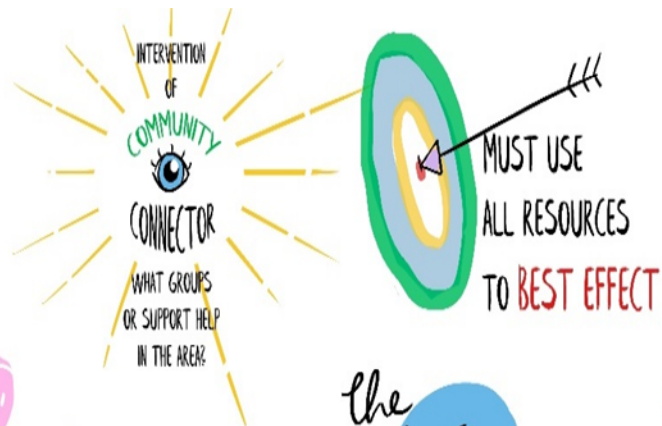 INTERVENTION
OF
COMMUNITY
CONNECTOR
WHAT GROUPS
OR SUPPORT HELP
IN THE AREA?
MUST USE
ALL RESOURCES
TO BEST EFFECT
the